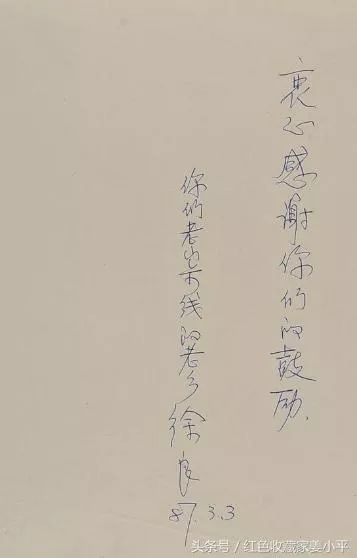 衷心感谢你们的鼓励.
你们老山前线的老乡 徐良
87.3.3
头条号 / 红色收藏家姜小平